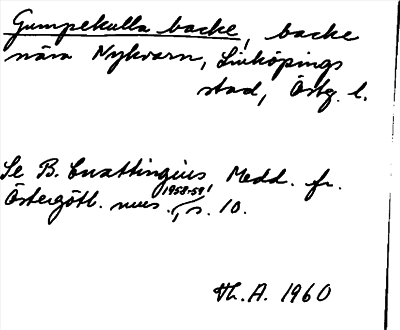 Gumpekulla backe, backe
nära Nykvarn, Linköpings
stad, Östg. l.
Se B. Cnattingius Medd. fr.
Östergötl. mus. 1958-59, s. 10.
Th. A. 1960